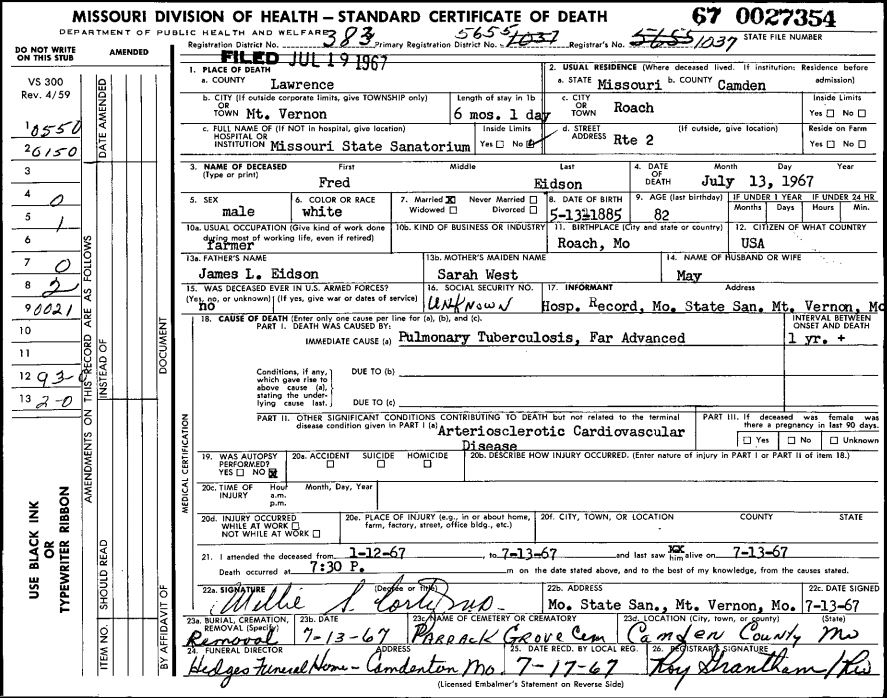 MISSOURI DIVISION OF HEALTH — STANDARD CERTIFICATE OF DEATH 67 0027354
DEPARTMENT OF PUBLIC HEALTH AND WELFARE STATE FILE NUMBER
Registration District No. 383 Primary Registration District No. 5655 1037 Registrar's No. 5655 1037
FILED JUL 19 1967
DO NOT WRITE ON THIS STUB
AMENDED
VS 300
Rev. 4/59
DATE AMENDED
1 0550
2 6150
3
4 0
5 1
6
7 0
8 2
9 0021
10
11
12 93-0
13 2-0
AMENDMENTS ON THIS RECORD ARE AS FOLLOWS
INSTEAD OF
DOCUMENT
SHOULD READ
ITEM NO.
BY AFFIDAVIT OF
USE BLACK INK
OR
TYPEWRITER RIBBON
MEDICAL CERTIFICATION
1. PLACE OF DEATH
a. COUNTY Lawrence
2. USUAL RESIDENCE (Where deceased lived. If institution: Residence before admission)
a. STATE Missouri b. COUNTY Camden
b. CITY (If outside corporate limits, give TOWNSHIP only) OR TOWN Mt. Vernon
Length of stay in 1b 6 mos. 1 day
c. CITY OR TOWN Roach
Inside Limits Yes □ No □
c. FULL NAME OF (If NOT in hospital, give location) HOSPITAL OR INSTITUTION Missouri State Sanatorium
Inside Limits Yes □ No □
d. STREET ADDRESS (If outside, give location) Rte 2
Reside on Farm Yes □ No □
3. NAME OF DECEASED (Type or print) First Middle Last
Fred Eidson
4. DATE OF DEATH Month Day Year
July 13, 1967
5. SEX male
6. COLOR OR RACE white
7. Married X Never Married □ Widowed □ Divorced □
8. DATE OF BIRTH 5-13-1885
9. AGE (last birthday) 82
IF UNDER 1 YEAR Months Days
IF UNDER 24 HR Hours Min.
10a. USUAL OCCUPATION (Give kind of work done during most of working life, even if retired) farmer
10b. KIND OF BUSINESS OR INDUSTRY
11. BIRTHPLACE (City and state or country) Roach, Mo
12. CITIZEN OF WHAT COUNTRY USA
13a. FATHER'S NAME James L. Eidson
13b. MOTHER'S MAIDEN NAME Sarah West
14. NAME OF HUSBAND OR WIFE May
15. WAS DECEASED EVER IN U.S. ARMED FORCES? (Yes, no, or unknown) (If yes, give war or dates of service) no
16. SOCIAL SECURITY NO. UNKNOWN
17. INFORMANT Address
Hosp. Record, Mo. State San. Mt. Vernon, Mo
18. CAUSE OF DEATH (Enter only one cause per line for (a), (b), and (c).
PART I. DEATH WAS CAUSED BY:
IMMEDIATE CAUSE (a) Pulmonary Tuberculosis, Far Advanced
INTERVAL BETWEEN ONSET AND DEATH 1 yr. +
Conditions, if any, which gave rise to above cause (a), stating the underlying cause last.
DUE TO (b)
DUE TO (c)
PART II. OTHER SIGNIFICANT CONDITIONS CONTRIBUTING TO DEATH but not related to the terminal disease condition given in PART I (a)
Arteriosclerotic Cardiovascular
Disease
PART III. If deceased was female was there a pregnancy in last 90 days.
□ Yes □ No □ Unknown
19. WAS AUTOPSY PERFORMED? YES □ NO X
20a. ACCIDENT □ SUICIDE □ HOMICIDE □
20b. DESCRIBE HOW INJURY OCCURRED. (Enter nature of injury in PART I or PART II of item 18.)
20c. TIME OF INJURY Hour a.m. p.m. Month, Day, Year
20d. INJURY OCCURRED WHILE AT WORK □ NOT WHILE AT WORK □
20e. PLACE OF INJURY (e.g., in or about home, farm, factory, street, office bldg., etc.)
20f. CITY, TOWN, OR LOCATION COUNTY STATE
21. I attended the deceased from 1-12-67 to 7-13-67 and last saw him alive on 7-13-67
Death occurred at 7:30 P. m on the date stated above, and to the best of my knowledge, from the causes stated.
22a. SIGNATURE (Degree or title) Millie S.
22b. ADDRESS Mo. State San., Mt. Vernon, Mo.
22c. DATE SIGNED 7-13-67
23a. BURIAL, CREMATION, REMOVAL (Specify) Removal
23b. DATE 7-13-67
23c. NAME OF CEMETERY OR CREMATORY PARRACK GROVE Cem
23d. LOCATION (City, town, or county) (State) Camden County Mo
24. FUNERAL DIRECTOR ADDRESS Hedges Funeral Home - Camdenton Mo.
25. DATE RECD. BY LOCAL REG. 7-17-67
26. REGISTRAR'S SIGNATURE Roy Grantham
(Licensed Embalmer's Statement on Reverse Side)